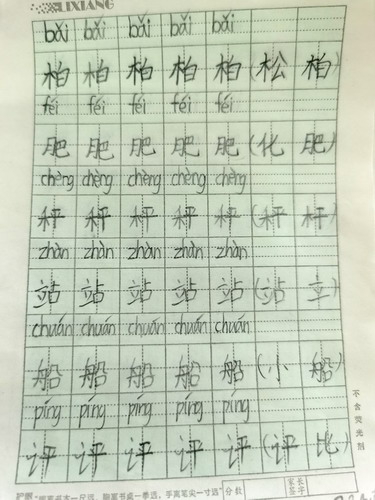 LIXIANG
bǎi bǎi bǎi bǎi bǎi
柏 柏 柏 柏 柏 (松 柏)
féi féi féi féi féi
肥 肥 肥 肥 肥 (化 肥)
chèng chèng chèng chèng chèng
秤 秤 秤 秤 秤 (秤 杆)
zhàn zhàn zhàn zhàn zhàn
站 站 站 站 站 (站 立)
chuán chuán chuán chuán chuán
船 船 船 船 船 (小 船)
píng píng píng píng píng
评 评 评 评 评 (评 比)
不含荧光剂
护眼"眼离书本一尺远,胸离书桌一拳远,手离笔尖一寸远" 分数 家长签字